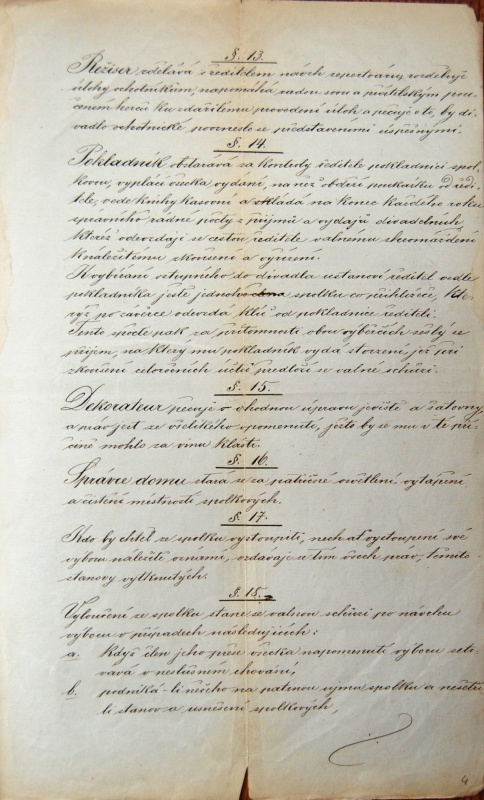 §. 13.
Režiser vzdělává s ředitelem návrh repertoiru, rozděluje
úlohy ochotníkům, napomáhá radou svou a přátelským pou-
čením herců ku zdařilému provedení úloh a pečuje o to, by di-
vadlo ochotnické povzneslo se představeními úspěšnými.
§. 14.
Pokladník obstarává za kontroly ředitele pokladnici spol-
kovou, vyplácí všecka vydání, na něž obdrží poukázku od ředi-
tele, vede knihy kasovní a skládá na konec každého roku
správního řádné počty z příjmů a vydajů divadelních
kteréž odevzdají se cestou ředitele valnému shromáždění
k náležitému zkoušení a vyřízení.
K vybírání vstupného do divadla ustanoví ředitel vedle
pokladníka ještě jednoho člena spolku co přihlížeče, kte-
rýž po závěrce odevzdá klíč od pokladnice řediteli.
Tento spočte pak za přítomnosti obou výběrčích sběhlý se
příjem, na který mu pokladník vydá stvrzení, jež při
zkoušení celoročních účtů předloží se valné schůzi.
§. 15.
Dekorateur pečuje o vhodnou úpravu jeviště a šatovny,
a práv jest ze všelikého opomenutí, ježto by se mu v té pří-
čině mohlo za vinu klásti.
§. 16.
Správce domu stará se za patřičné osvětlení, vytápění
a čistění místností spolkových.
§. 17.
Kdo by chtěl ze spolku vystoupiti, nechať vystoupení své
výboru náležitě oznámí, vzdávaje se tím všech práv, těmito
stanovy vytknutých.
§. 18.
Vyloučení ze spolku stane se valnou schůzí po návrhu
výboru v případech následujících:
a. Když člen jeho přese všecka napomenutí výboru setr-
vává v neslušném chování,
b. podniká-li něčeho na patrnou újmu spolku a nešetří
li stanov a usnešení spolkových,
4